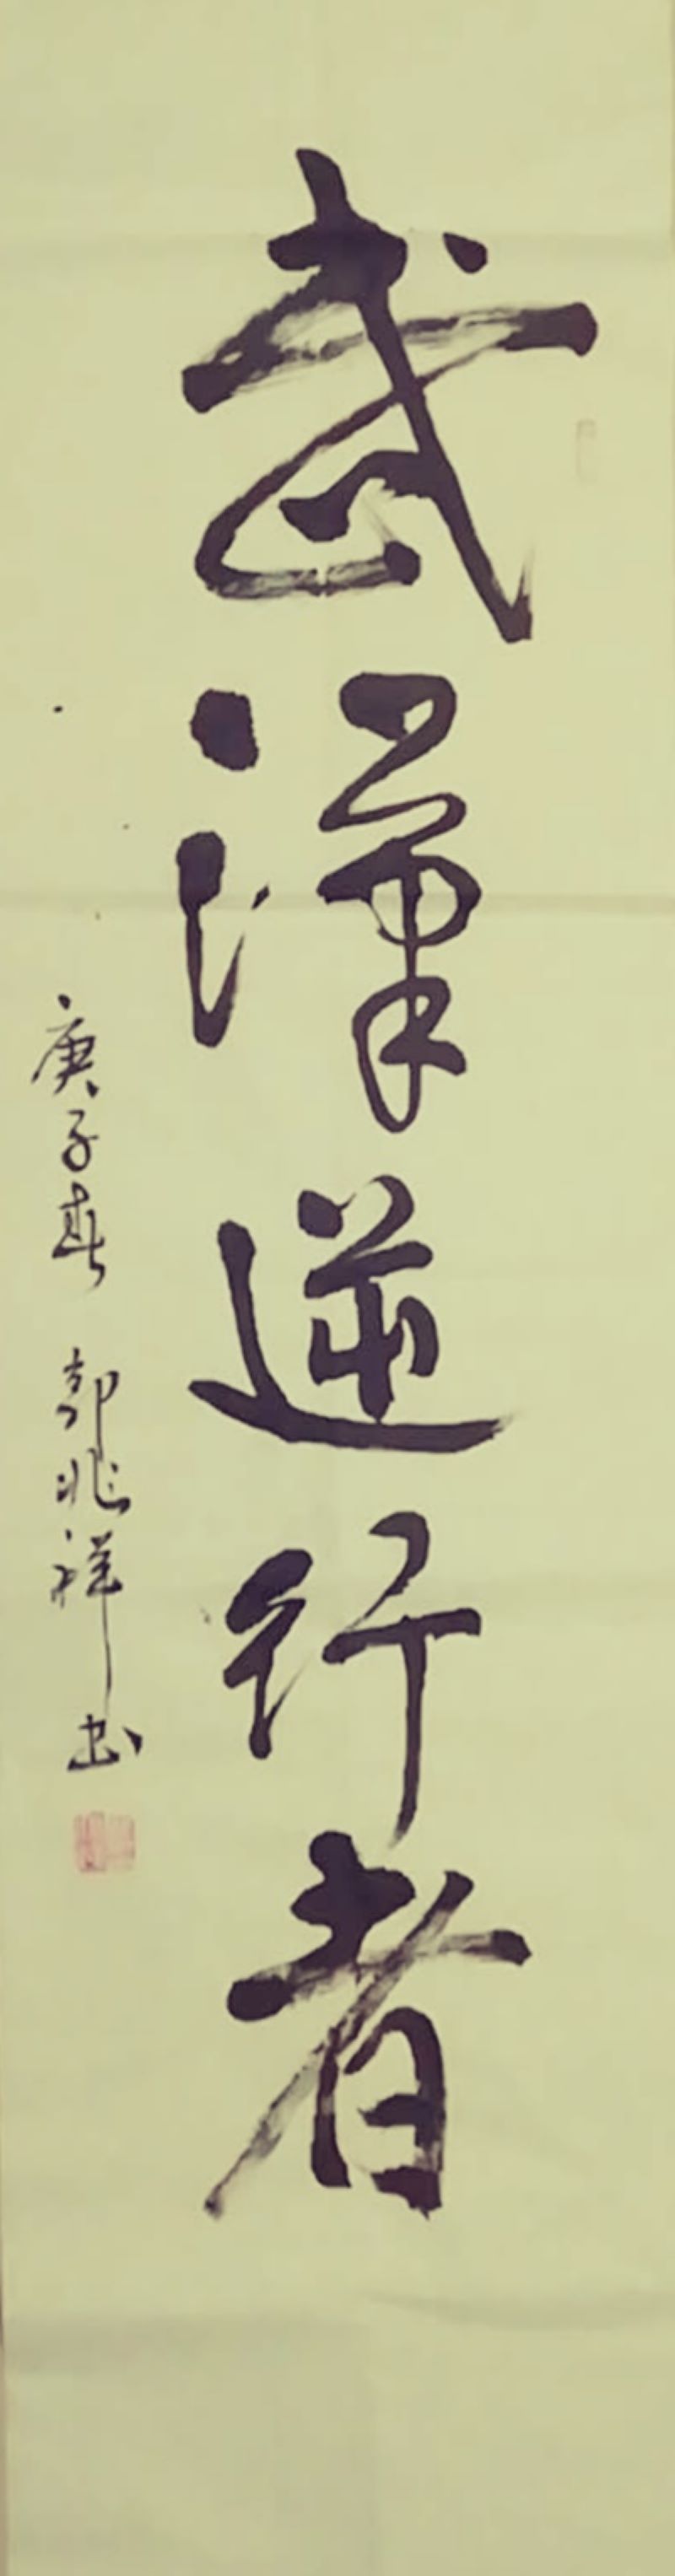 武漢逆行者
庚子春 郭兆祥书